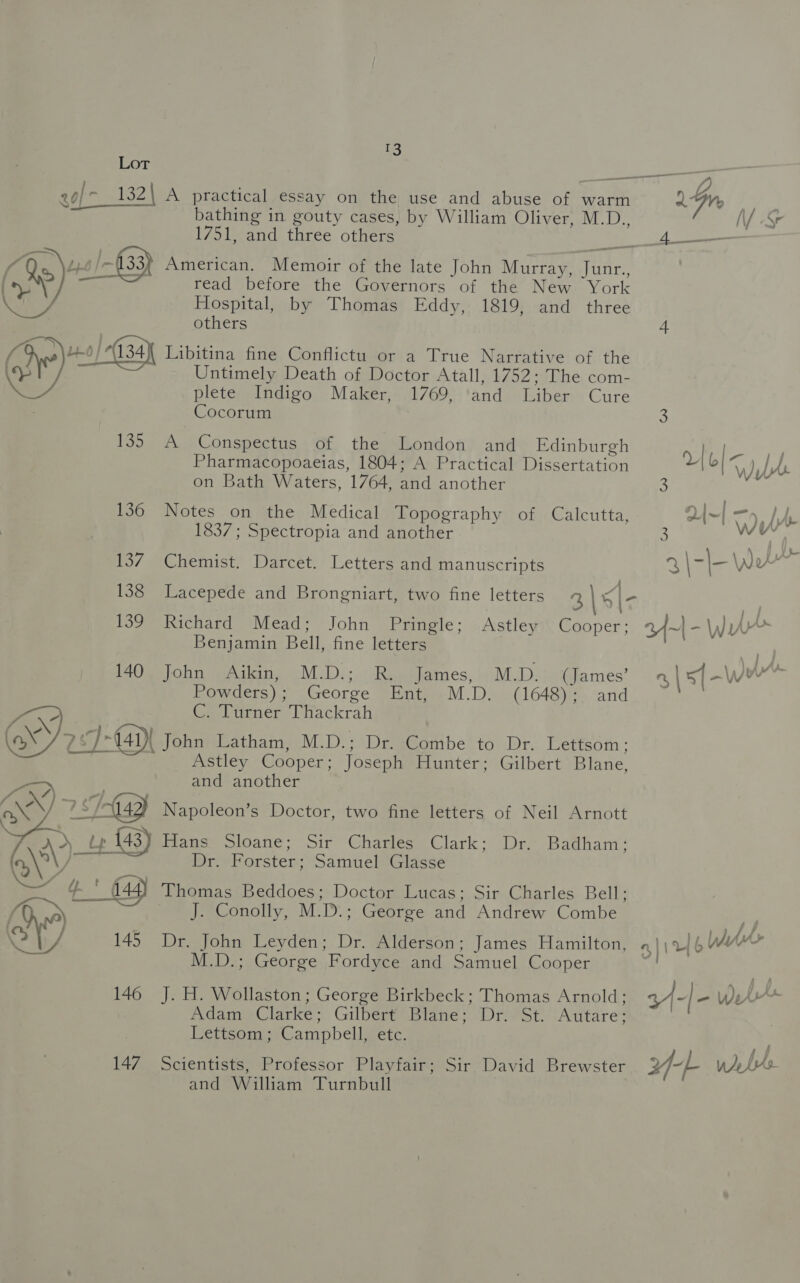 13
Lot
132 A practical essay on the use and abuse of warm
bathing in gouty cases, by William Oliver, M.D.,
1751, and three others 4
133 American. Memoir of the late John Murray, Junr.,
read before the Governors of the New York
Hospital, by Thomas Eddy, 1819, and three
others 4
134 Libitina fine Conflictu or a True Narrative of the
Untimely Death of Doctor Atall, 1752; The com-
plete Indigo Maker, 1769, and Liber Cure
Cocorum 3
135 A Conspectus of the London and Edinburgh
Pharmacopoaeias, 1804; A Practical Dissertation
on Bath Waters, 1764, and another 3
136 Notes on the Medical Topography of Calcutta,
1837; Spectropia and another 3
137 Chemist. Darcet. Letters and manuscripts
138 Lacepede and Brongniart, two fine letters
139 Richard Mead; John Pringle; Astley Cooper;
Benjamin Bell, fine letters
140 John Aikin, M.D.; R. James, M.D. (James'
Powders); George Ent, M.D. (1648); and
C. Turner Thackrah
141 John Latham, M.D.; Dr. Combe to Dr. Lettsom;
Astley Cooper; Joseph Hunter; Gilbert Blane,
and another
142 Napoleon's Doctor, two fine letters of Neil Arnott
143 Hans Sloane; Sir Charles Clark; Dr. Badham;
Dr. Forster; Samuel Glasse
144 Thomas Beddoes; Doctor Lucas; Sir Charles Bell;
J. Conolly, M.D.; George and Andrew Combe
145 Dr. John Leyden; Dr. Alderson; James Hamilton,
M.D.; George Fordyce and Samuel Cooper
146 J. H. Wollaston; George Birkbeck; Thomas Arnold;
Adam Clarke; Gilbert Blane; Dr. St. Autare;
Lettsom; Campbell, etc.
147 Scientists, Professor Playfair; Sir David Brewster
and William Turnbull